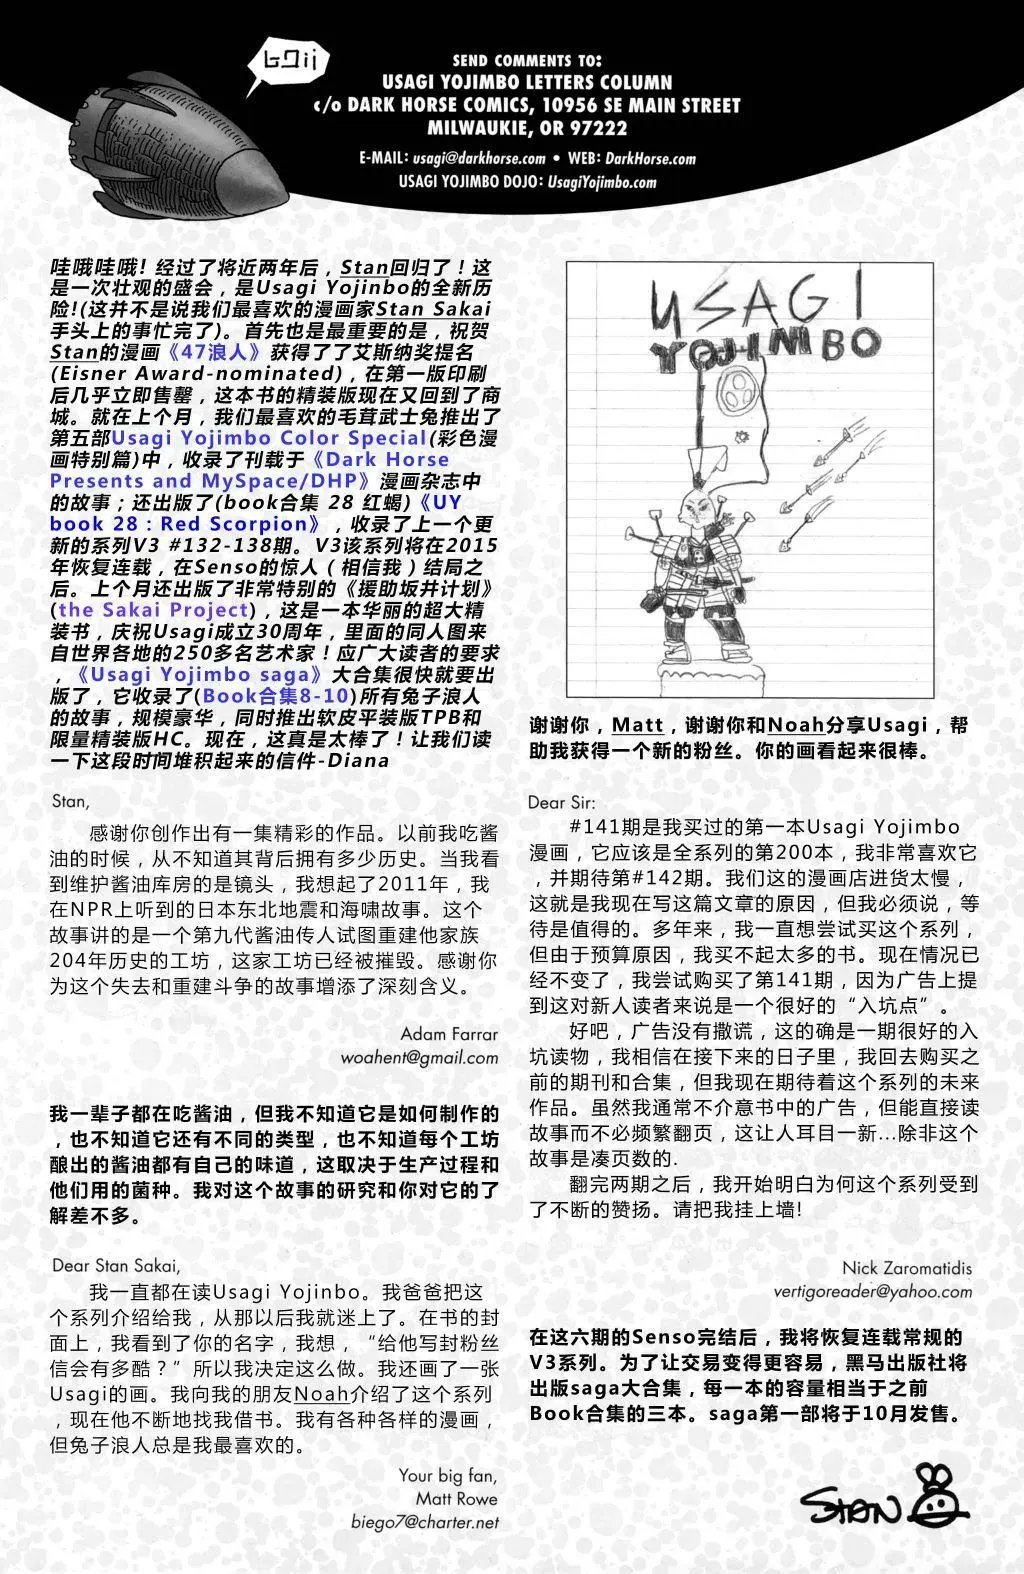 SEND COMMENTS TO:
USAGI YOJIMBO LETTERS COLUMN
c/o DARK HORSE COMICS, 10956 SE MAIN STREET
MILWAUKIE, OR 97222
E-MAIL: usagi@darkhorse.com • WEB: DarkHorse.com
USAGI YOJIMBO DOJO: UsagiYojimbo.com
哇哦哇哦！经过了将近两年后，Stan回归了！这
是一次壮观的盛会，是Usagi Yojinbo的全新历
险!(这并不是说我们最喜欢的漫画家Stan Sakai
手头上的事忙完了)。首先也是最重要的是，祝贺
Stan的漫画《47浪人》获得了了艾斯纳奖提名
(Eisner Award-nominated)，在第一版印刷
后几乎立即售罄，这本书的精装版现在又回到了商
城。就在上个月，我们最喜欢的毛茸武士兔推出了
第五部Usagi Yojimbo Color Special(彩色漫
画特别篇)中，收录了刊载于《Dark Horse
Presents and MySpace/DHP》漫画杂志中
的故事；还出版了(book合集 28 红蝎)《UY
book 28：Red Scorpion》，收录了上一个更
新的系列V3 #132-138期。V3该系列将在2015
年恢复连载，在Senso的惊人（相信我）结局之
后。上个月还出版了非常特别的《援助坂井计划》
(the Sakai Project)，这是一本华丽的超大精
装书，庆祝Usagi成立30周年，里面的同人图来
自世界各地的250多名艺术家！应广大读者的要求
，《Usagi Yojimbo saga》大合集很快就要出
版了，它收录了(Book合集8-10)所有兔子浪人
的故事，规模豪华，同时推出软皮平装版TPB和
限量精装版HC。现在，这真是太棒了！让我们读
一下这段时间堆积起来的信件-Diana
Stan,
感谢你创作出有一集精彩的作品。以前我吃酱
油的时候，从不知道其背后拥有多少历史。当我看
到维护酱油库房的是镜头，我想起了2011年，我
在NPR上听到的日本东北地震和海啸故事。这个
故事讲的是一个第九代酱油传人试图重建他家族
204年历史的工坊，这家工坊已经被摧毁。感谢你
为这个失去和重建斗争的故事增添了深刻含义。
Adam Farrar
woahent@gmail.com
我一辈子都在吃酱油，但我不知道它是如何制作的
，也不知道它还有不同的类型，也不知道每个工坊
酿出的酱油都有自己的味道，这取决于生产过程和
他们用的菌种。我对这个故事的研究和你对它的了
解差不多。
Dear Stan Sakai,
我一直都在读Usagi Yojinbo。我爸爸把这
个系列介绍给我，从那以后我就迷上了。在书的封
面上，我看到了你的名字，我想，“给他写封粉丝
信会有多酷？”所以我决定这么做。我还画了一张
Usagi的画。我向我的朋友Noah介绍了这个系列
，现在他不断地找我借书。我有各种各样的漫画，
但兔子浪人总是我最喜欢的。
Your big fan,
Matt Rowe
biego7@charter.net
USAGI
YOJIMBO
谢谢你，Matt，谢谢你和Noah分享Usagi，帮
助我获得一个新的粉丝。你的画看起来很棒。
Dear Sir:
#141期是我买过的第一本Usagi Yojimbo
漫画，它应该是全系列的第200本，我非常喜欢它
，并期待第#142期。我们这的漫画店进货太慢，
这就是我现在写这篇文章的原因，但我必须说，等
待是值得的。多年来，我一直想尝试买这个系列，
但由于预算原因，我买不起太多的书。现在情况已
经不变了，我尝试购买了第141期，因为广告上提
到这对新人读者来说是一个很好的“入坑点”。
好吧，广告没有撒谎，这的确是一期很好的入
坑读物，我相信在接下来的日子里，我回去购买之
前的期刊和合集，但我现在期待着这个系列的未来
作品。虽然我通常不介意书中的广告，但能直接读
故事而不必频繁翻页，这让人耳目一新...除非这个
故事是凑页数的.
翻完两期之后，我开始明白为何这个系列受到
了不断的赞扬。请把我挂上墙!
Nick Zaromatidis
vertigoreader@yahoo.com
在这六期的Senso完结后，我将恢复连载常规的
V3系列。为了让交易变得更容易，黑马出版社将
出版saga大合集，每一本的容量相当于之前
Book合集的三本。saga第一部将于10月发售。
STAN